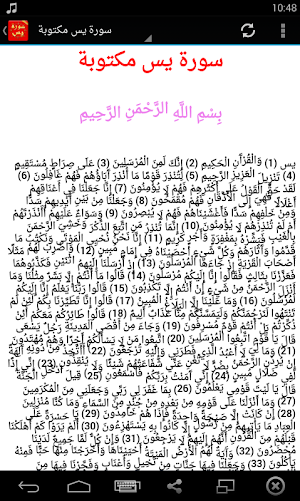 10:48
سورة يس مكتوبة
سورة يس مكتوبة
بِسْمِ اللَّهِ الرَّحْمَنِ الرَّحِيمِ
يس (1) وَالْقُرْآنِ الْحَكِيمِ (2) إِنَّكَ لَمِنَ الْمُرْسَلِينَ (3) عَلَى صِرَاطٍ مُسْتَقِيمٍ
(4) تَنْزِيلَ الْعَزِيزِ الرَّحِيمِ (5) لِتُنْذِرَ قَوْمًا مَا أُنْذِرَ آبَاؤُهُمْ فَهُمْ غَافِلُونَ (6)
لَقَدْ حَقَّ الْقَوْلُ عَلَى أَكْثَرِهِمْ فَهُمْ لَا يُؤْمِنُونَ (7) إِنَّا جَعَلْنَا فِي أَعْنَاقِهِمْ
أَغْلَالًا فَهِيَ إِلَى الْأَذْقَانِ فَهُمْ مُقْمَحُونَ (8) وَجَعَلْنَا مِنْ بَيْنِ أَيْدِيهِمْ سَدًّا
وَمِنْ خَلْفِهِمْ سَدًّا فَأَغْشَيْنَاهُمْ فَهُمْ لَا يُبْصِرُونَ (9) وَسَوَاءٌ عَلَيْهِمْ أَأَنْذَرْتَهُمْ
أَمْ لَمْ تُنْذِرْهُمْ لَا يُؤْمِنُونَ (10) إِنَّمَا تُنْذِرُ مَنِ اتَّبَعَ الذِّكْرَ وَخَشِيَ الرَّحْمَنَ
بِالْغَيْبِ فَبَشِّرْهُ بِمَغْفِرَةٍ وَأَجْرٍ كَرِيمٍ (11) إِنَّا نَحْنُ نُحْيِي الْمَوْتَى وَنَكْتُبُ مَا
قَدَّمُوا وَآثَارَهُمْ وَكُلَّ شَيْءٍ أَحْصَيْنَاهُ فِي إِمَامٍ مُبِينٍ (12) وَاضْرِبْ لَهُمْ مَثَلًا
أَصْحَابَ الْقَرْيَةِ إِذْ جَاءَهَا الْمُرْسَلُونَ (13) إِذْ أَرْسَلْنَا إِلَيْهِمُ اثْنَيْنِ فَكَذَّبُوهُمَا
فَعَزَّزْنَا بِثَالِثٍ فَقَالُوا إِنَّا إِلَيْكُمْ مُرْسَلُونَ (14) قَالُوا مَا أَنْتُمْ إِلَّا بَشَرٌ مِثْلُنَا وَمَا
أَنْزَلَ الرَّحْمَنُ مِنْ شَيْءٍ إِنْ أَنْتُمْ إِلَّا تَكْذِبُونَ (15) قَالُوا رَبُّنَا يَعْلَمُ إِنَّا إِلَيْكُمْ
لَمُرْسَلُونَ (16) وَمَا عَلَيْنَا إِلَّا الْبَلَاغُ الْمُبِينُ (17) قَالُوا إِنَّا تَطَيَّرْنَا بِكُمْ لَئِنْ لَمْ
تَنْتَهُوا لَنَرْجُمَنَّكُمْ وَلَيَمَسَّنَّكُمْ مِنَّا عَذَابٌ أَلِيمٌ (18) قَالُوا طَائِرُكُمْ مَعَكُمْ أَئِنْ
ذُكِّرْتُمْ بَلْ أَنْتُمْ قَوْمٌ مُسْرِفُونَ (19) وَجَاءَ مِنْ أَقْصَى الْمَدِينَةِ رَجُلٌ يَسْعَى
قَالَ يَا قَوْمِ اتَّبِعُوا الْمُرْسَلِينَ (20) اتَّبِعُوا مَنْ لَا يَسْأَلُكُمْ أَجْرًا وَهُمْ مُهْتَدُونَ
(21) وَمَا لِيَ لَا أَعْبُدُ الَّذِي فَطَرَنِي وَإِلَيْهِ تُرْجَعُونَ (22) أَأَتَّخِذُ مِنْ دُونِهِ آلِهَةً
إِنْ يُرِدْنِ الرَّحْمَنُ بِضُرٍّ لَا تُغْنِ عَنِّي شَفَاعَتُهُمْ شَيْئًا وَلَا يُنْقِذُونِ (23) إِنِّي إِذًا
لَفِي ضَلَالٍ مُبِينٍ (24) إِنِّي آمَنْتُ بِرَبِّكُمْ فَاسْمَعُونِ (25) قِيلَ ادْخُلِ الْجَنَّةَ
قَالَ يَا لَيْتَ قَوْمِي يَعْلَمُونَ (26) بِمَا غَفَرَ لِي رَبِّي وَجَعَلَنِي مِنَ الْمُكْرَمِينَ
(27) وَمَا أَنْزَلْنَا عَلَى قَوْمِهِ مِنْ بَعْدِهِ مِنْ جُنْدٍ مِنَ السَّمَاءِ وَمَا كُنَّا مُنْزِلِينَ
(28) إِنْ كَانَتْ إِلَّا صَيْحَةً وَاحِدَةً فَإِذَا هُمْ خَامِدُونَ (29) يَا حَسْرَةً عَلَى
الْعِبَادِ مَا يَأْتِيهِمْ مِنْ رَسُولٍ إِلَّا كَانُوا بِهِ يَسْتَهْزِئُونَ (30) أَلَمْ يَرَوْا كَمْ أَهْلَكْنَا
قَبْلَهُمْ مِنَ الْقُرُونِ أَنَّهُمْ إِلَيْهِمْ لَا يَرْجِعُونَ (31) وَإِنْ كُلٌّ لَمَّا جَمِيعٌ لَدَيْنَا
مُحْضَرُونَ (32) وَآيَةٌ لَهُمُ الْأَرْضُ الْمَيْتَةُ أَحْيَيْنَاهَا وَأَخْرَجْنَا مِنْهَا حَبًّا فَمِنْهُ
يَأْكُلُونَ (33) وَجَعَلْنَا فِيهَا جَنَّاتٍ مِنْ نَخِيلٍ وَأَعْنَابٍ وَفَجَّرْنَا فِيهَا مِنَ